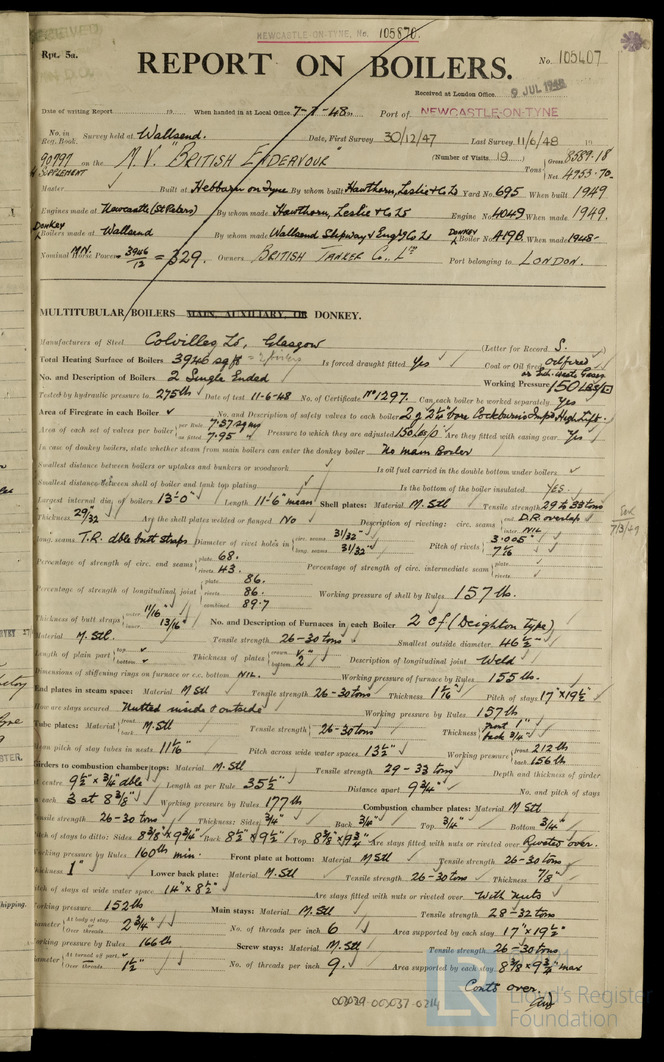 NEWCASTLE-ON-TYNE, No. 105870.
Rpt. 5a.
REPORT ON BOILERS.
No. 105407
Received at London Office 9 JUL 1948
Date of writing Report 19 When handed in at Local Office 7-7-48 Port of NEWCASTLE-ON-TYNE
No. in Reg. Book. Survey held at Wallsend. Date, First Survey 30/12/47 Last Survey 11/6/48 19
90797 on the M.V. "BRITISH ENDEAVOUR" (Number of Visits 19) Tons Gross 8589.18
SUPPLEMENT Net 4753.70
Master Built at Hebburn on Tyne By whom built Hawthorn, Leslie & Co Ld Yard No. 695 When built 1949
Engines made at Newcastle (St Peters) By whom made Hawthorn, Leslie & Co Ld Engine No. 4049 When made 1949.
DONKEY Boilers made at Wallsend By whom made Wallsend Slipway & Engg Co Ld DONKEY Boiler No. A19B When made 1948
Nominal Horse Power MN. 3946/12 = 329. Owners BRITISH TANKER Co., Ld Port belonging to LONDON.
MULTITUBULAR BOILERS MAIN, AUXILIARY, OR DONKEY.
Manufacturers of Steel Colvilles Ld, Glasgow (Letter for Record S.)
Total Heating Surface of Boilers 3946 sq ft = 2 boilers Is forced draught fitted Yes Coal or Oil fired Oil fired
or Exh. waste Gases
No. and Description of Boilers 2 Single Ended Working Pressure 150 Lbs/□
Tested by hydraulic pressure to 275 lbs Date of test 11-6-48 No. of Certificate No 1297. Can each boiler be worked separately Yes
Area of Firegrate in each Boiler No. and Description of safety valves to each boiler 2 of 2½" bore Cockburn's Impd High Lift.
Area of each set of valves per boiler per Rule 7.57 sq ins as fitted 7.95 Pressure to which they are adjusted 150 Lbs/□ Are they fitted with easing gear Yes
In case of donkey boilers, state whether steam from main boilers can enter the donkey boiler No main Boiler
Smallest distance between boilers or uptakes and bunkers or woodwork Is oil fuel carried in the double bottom under boilers
Smallest distance between shell of boiler and tank top plating Is the bottom of the boiler insulated YES.
Largest internal dia. of boilers 13'-0" Length 11'-6" mean Shell plates: Material M. Stl Tensile strength 29 to 33 tons
Thickness 29/32 Are the shell plates welded or flanged No Description of riveting: circ. seams end D.R. overlap inter. NIL
long. seams T.R. dble butt straps Diameter of rivet holes in circ. seams 31/32" long. seams 31/32" Pitch of rivets 3.005" 7⅛"
Percentage of strength of circ. end seams plate 68. rivets 43. Percentage of strength of circ. intermediate seam plate rivets
Percentage of strength of longitudinal joint plate 86. rivets 86. combined 89.7 Working pressure of shell by Rules 157 lb.
Thickness of butt straps outer 11/16" inner 13/16" No. and Description of Furnaces in each Boiler 2 Cf (Deighton type)
Material M. Stl. Tensile strength 26-30 tons Smallest outside diameter 46½"
Length of plain part top bottom Thickness of plates crown bottom ½" Description of longitudinal joint Weld
Dimensions of stiffening rings on furnace or c.c. bottom NIL. Working pressure of furnace by Rules 155 lb.
End plates in steam space: Material M Stl Tensile strength 26-30 tons Thickness 1 1/16" Pitch of stays 17" x 19½"
How are stays secured Nutted inside & outside Working pressure by Rules 157 lb
Tube plates: Material front back M. Stl Tensile strength 26-30 tons Thickness front 1" back ¾"
Mean pitch of stay tubes in nests 11 1/16 Pitch across wide water spaces 13½" Working pressure front 212 lbs back 156 lbs
Girders to combustion chamber tops: Material M. Stl Tensile strength 29-33 tons Depth and thickness of girder
at centre 9½" x ¾" dble Length as per Rule 35½" Distance apart 9¾" No. and pitch of stays
in each 3 at 8⅜" Working pressure by Rules 177 lb Combustion chamber plates: Material M Stl
Tensile strength 26-30 tons Thickness: Sides ¾" Back ¾" Top ¾" Bottom ¾"
Pitch of stays to ditto: Sides 8⅜" x 9¾" Back 8½" x 9½" Top 8⅜" x 9¾ Are stays fitted with nuts or riveted over Riveted over.
Working pressure by Rules 160 lb min. Front plate at bottom: Material M Stl Tensile strength 26-30 tons
Thickness 1" Lower back plate: Material M. Stl Tensile strength 26-30 tons Thickness ⅞"
Pitch of stays at wide water space 14" x 8½" Are stays fitted with nuts or riveted over With nuts
Working pressure 152 lb Main stays: Material M. Stl Tensile strength 28-32 tons
Diameter At body of stay or Over threads 2¾" No. of threads per inch 6 Area supported by each stay 17" x 19½"
Working pressure by Rules 166 lb Screw stays: Material M. Stl Tensile strength 26-30 tons
Diameter At turned off part or Over threads 1½" No. of threads per inch 9. Area supported by each stay 8⅜ x 9¾" max
Contd over.
003029-003037-0214
LR Lloyd's Register
Foundation
7/3/49
shipping.